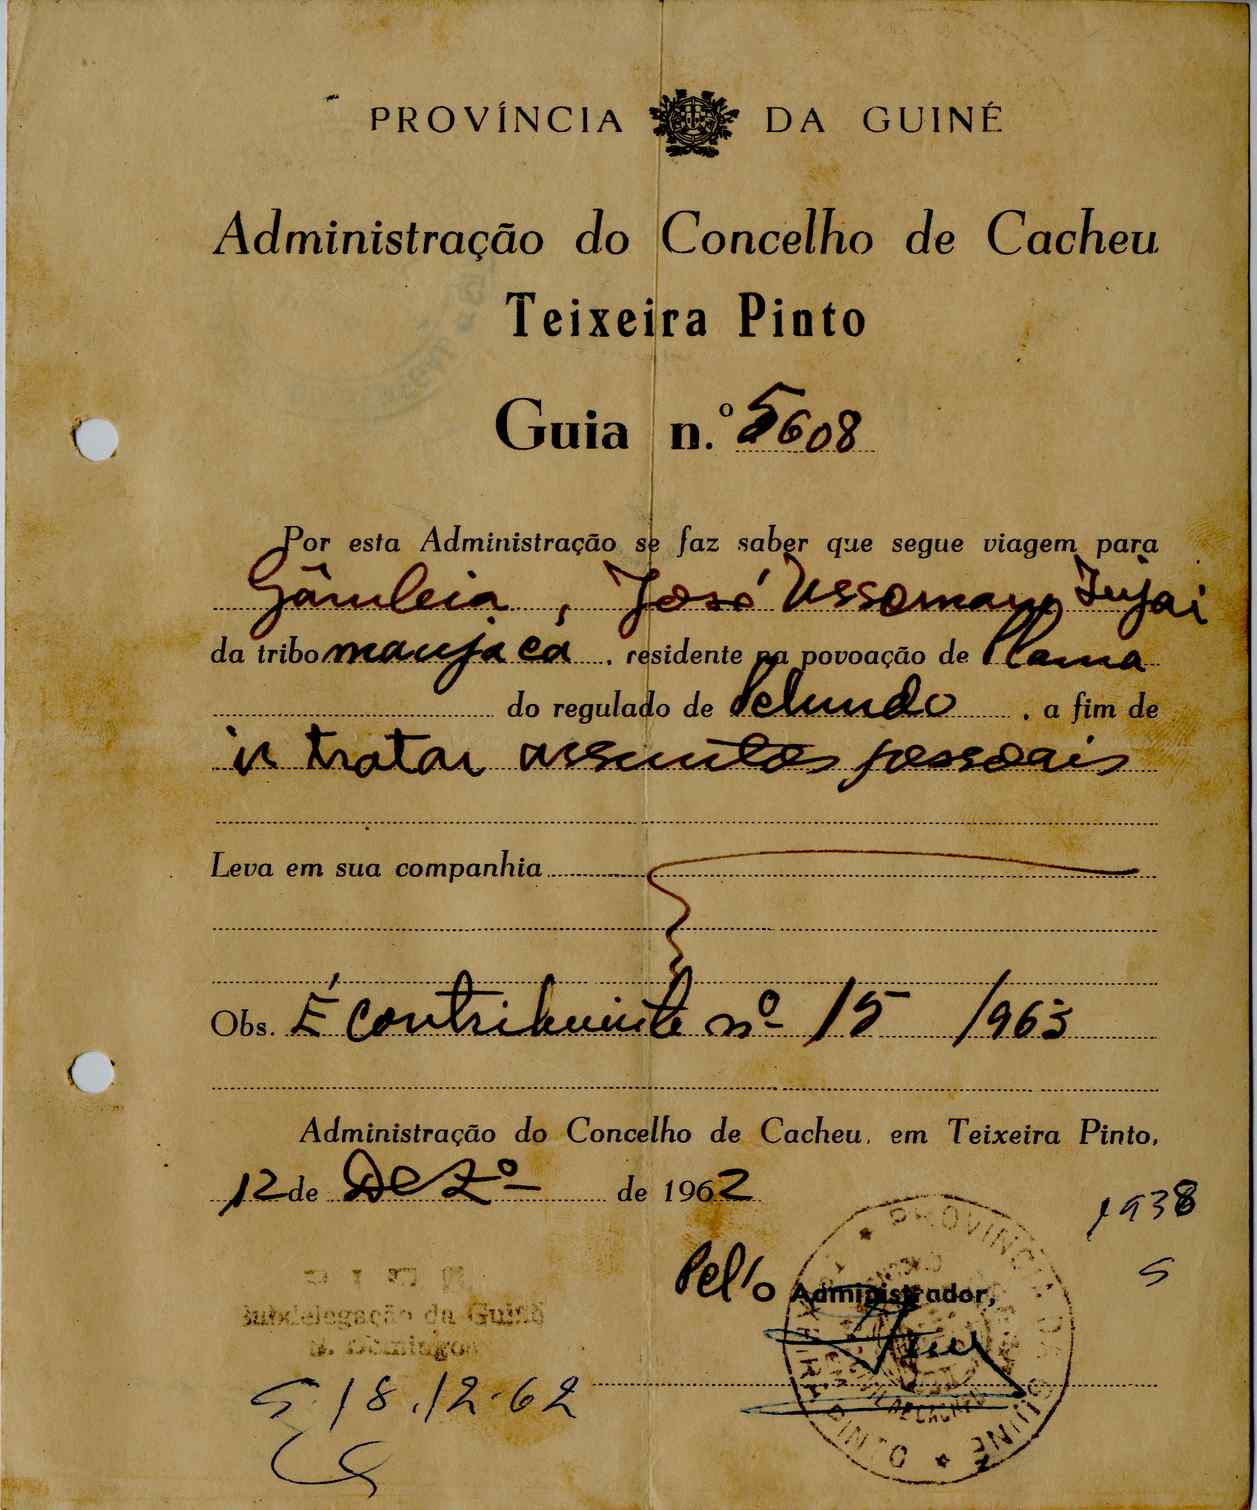 PROVÍNCIA DA GUINÉ
Administração do Concelho de Cacheu
Teixeira Pinto
Guia n.º 5608
Por esta Administração se faz saber que segue viagem para
Gâmbeia, José Ussomany Injai
da tribo manjaca, residente na povoação de Plama
do regulado de Pelundo, a fim de
ir tratar assuntos pessoais
Leva em sua companhia
Obs. É contribuinte nº 15 /963
Administração do Concelho de Cacheu, em Teixeira Pinto,
12 de Dezº de 1962
1938
S
Pel'o Administrador,
PROVINCIA DA GUINÉ
TEIXEIRA PINTO
Subdelegação da Guiné
S. Domingos
S 18.12.62